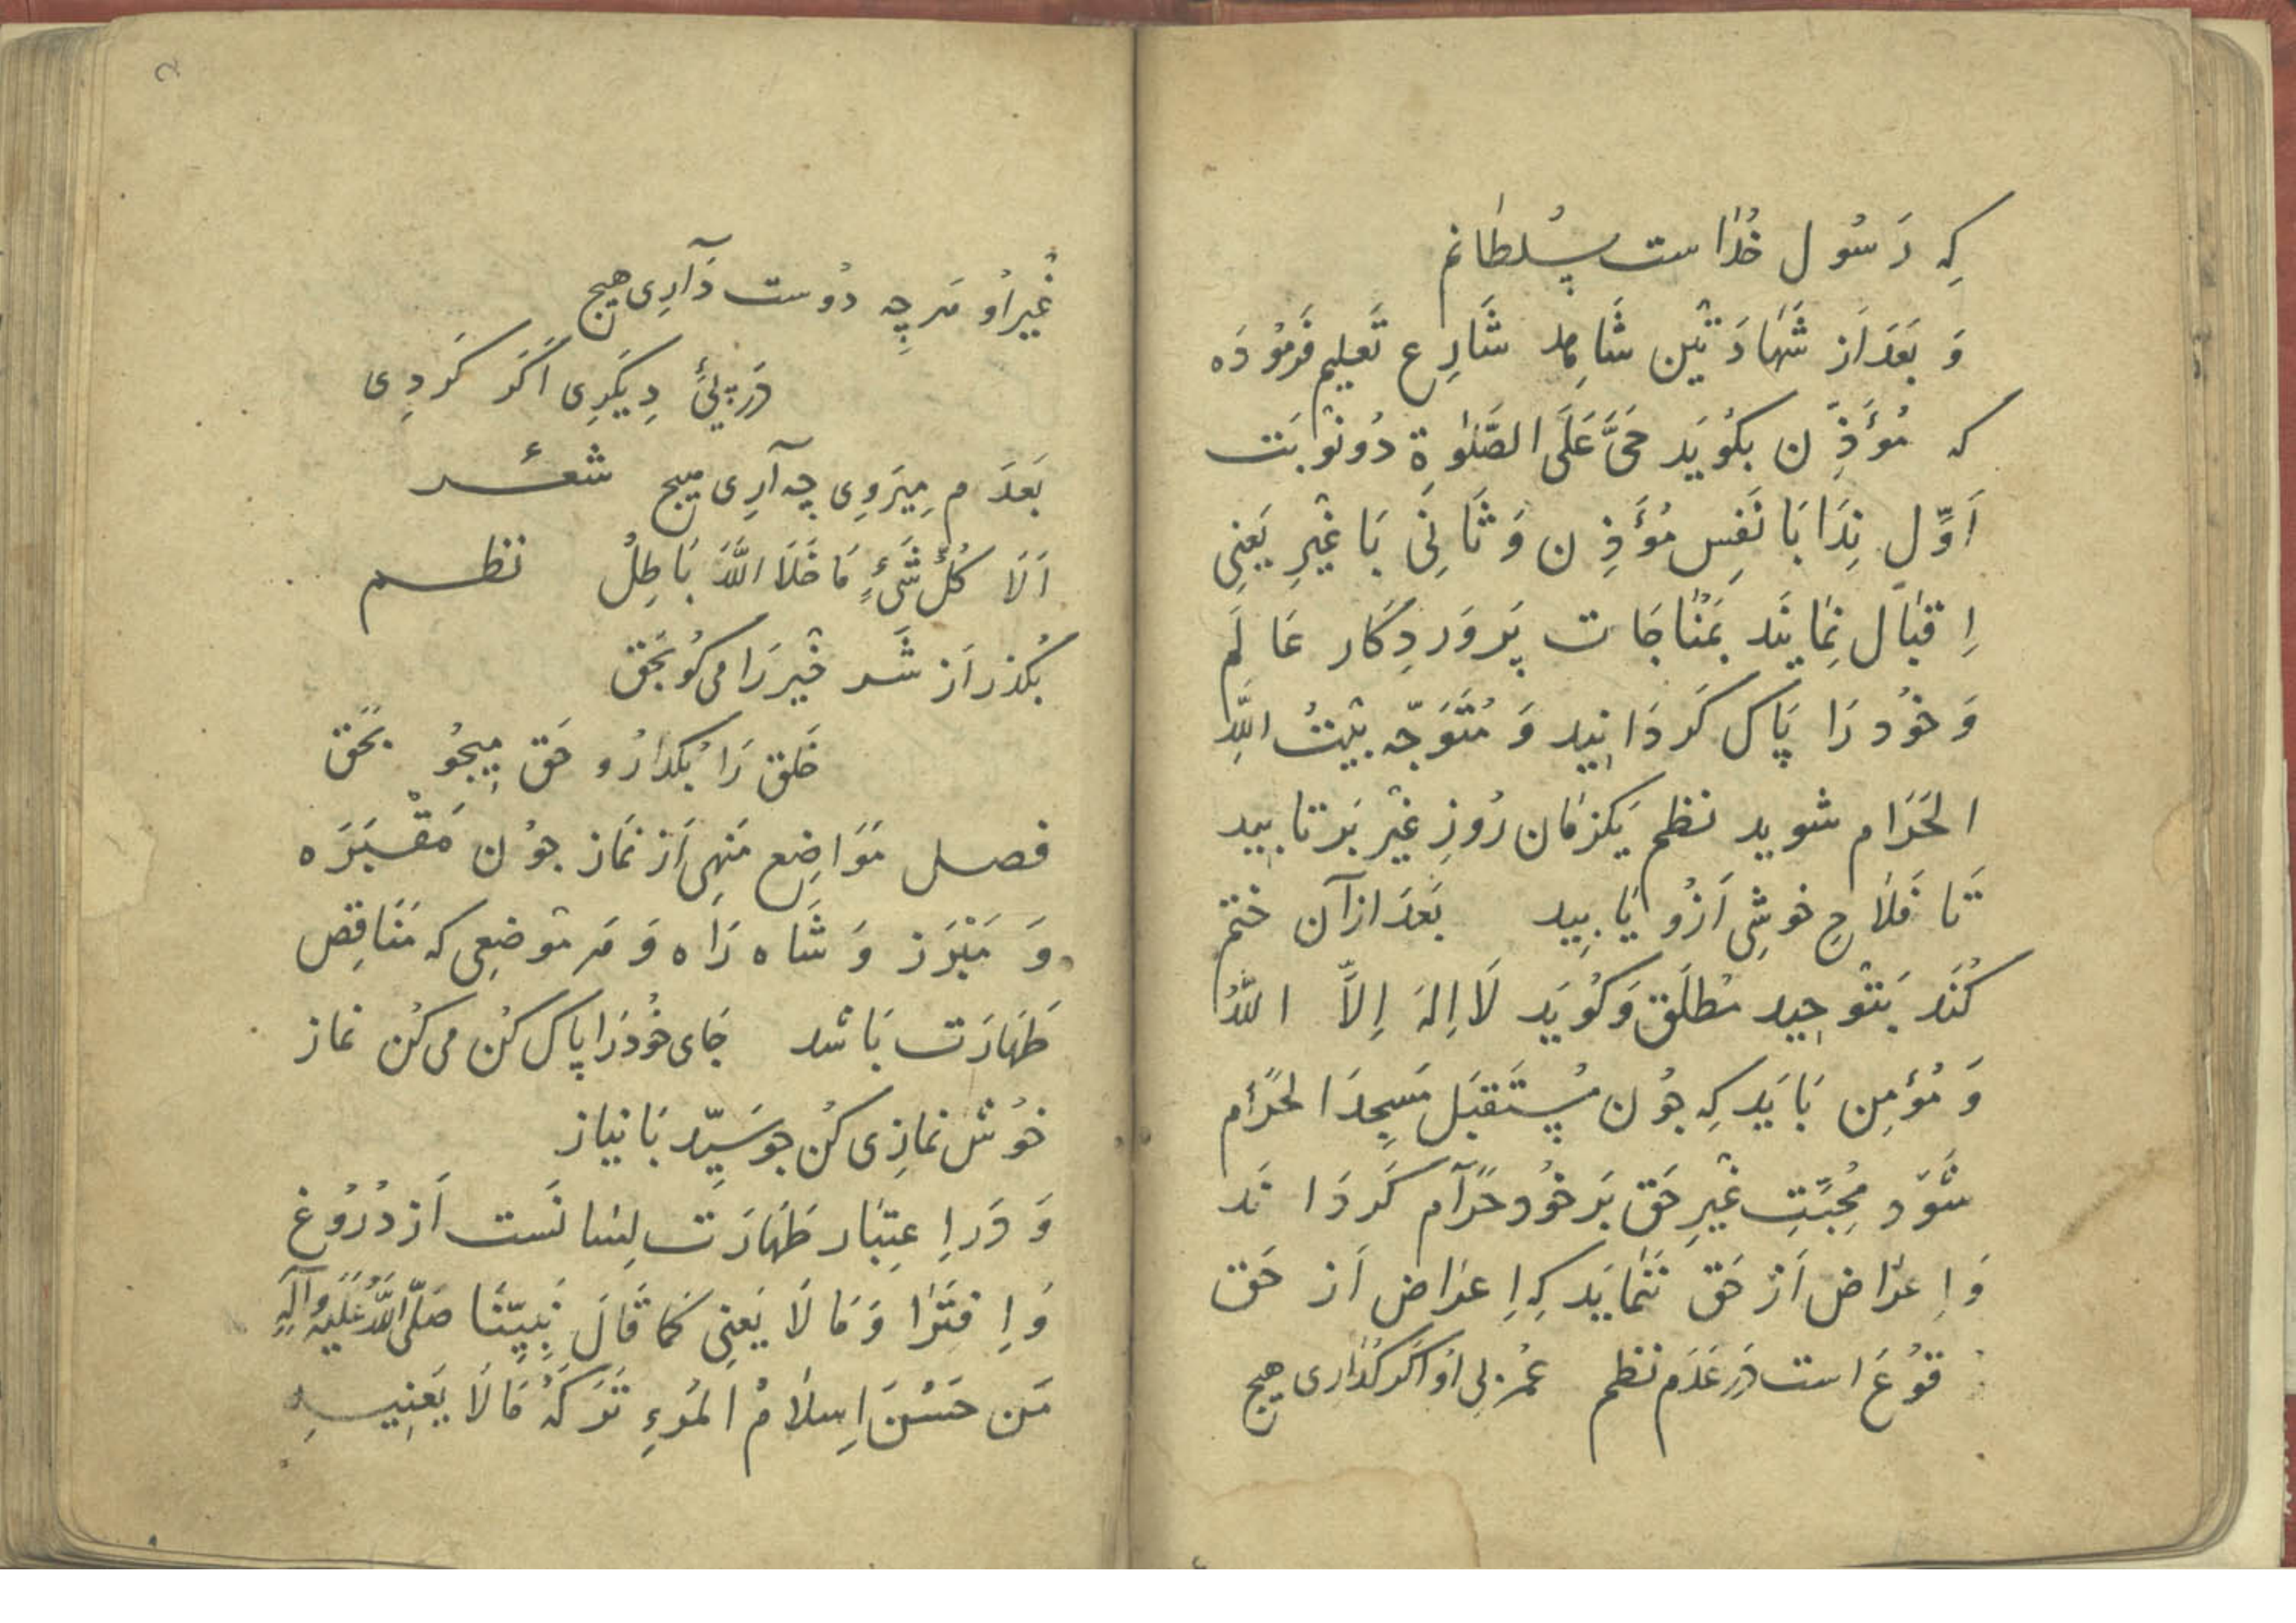 كِه رَسُول خُدٰاست سُلطانم
وَ بَعَد اَز شَهَادَتَيْن شَاهِد شَارِع تَعليم فَرمُودَه
كه مُؤَذِّن بكُويَد حَىَّ عَلَى الصَّلٰوةِ دُو نَوْبَت
اَوِّل نِدَا بَا نَفِس مُؤَذِن وَ ثَانِى بَا غَيْرِ يَعنِى
اِقبٰال نِمٰايَند بمُنٰاجَات پَروَردِكَار عَالَم
وَ خوُد رَا پَاك كَردَانيد وَ مُتَوَجّه بَيْتُ اللّٰه
الحَرَام شويد نظم يَكزمَان رُوزِ غَيْر بَر تابيد
تَا فَلاٰحِ خوشِى اَزُو يَابِيد بَعَد ازآن ختم
كُنَد بَتَوْحيد مُطلَق وَ كُويَد لَا اِلهَ اِلَّا اللّٰهُ
وَ مُؤمِن بَايَد كِه جُون مُستَقبَل مَسجِدَ الحَرَام
شَوَد مُحِبَّتِ غَيْرِ حَق بَر خوُد حَرَآم كَردَاند
وَ اِعرَاض اَز حَق نَنمٰايَد كِه اِعرَاض اَز حَق
قوُعَ است دَر عَدَم نظم عُمر بى اوُ اكَر كُذارى هيچ
2
غَيْر اوُ هَرچِه دُوست دَآرِى هيچ
دَر پئ دِيكَرِى اَكَر كَردِى
بَعَدَم مِيرَوِى چه آرِى هيچ شعر
اَلَا كُلُّ شَىْءٍ مَا خَلَا اللّٰهَ بَاطِلُ نظم
بُكذر اَز شَر خَيْر رَا مى كُو بَحَق
خَلق رَا بُكذٰارُ و حَق مِيجُو بَحَق
فصل مَوَاضِع مَنهِى اَز نمَاز جوُن مَقْبَرَه
وَ مَبْرَز وَ شَاه رَاه وَ هَر مَوضعِى كه مَنَاقِض
طَهَارَت بَاشد جَاى خوُد رَا پَاك كُن مى كُن نماز
خوُش نمازِى كُن جو سَيِّد بَا نياز
وَ دَر اِعتِبٰار طَهَارَت لِسَانَست اَز دُرُوغ
وَ اِفتَرٰا وَ مَا لَا يَعنِى كمَا قَالَ نَبِيِّنَا صَلَّى اللّٰهُ عَلَيهِ وَآلِهِ
مَن حَسُنَ اِسلَامُ المَرءِ تَركهُ مَا لَا يَعنِيهِ